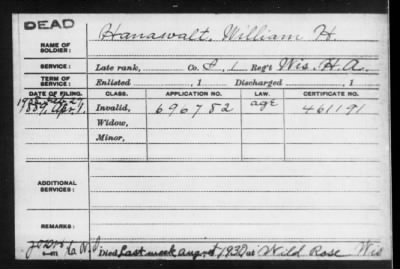 DEAD
NAME OF SOLDIER: Hanawalt, William H.
SERVICE: Late rank, Co. F, 1 Reg't Wis. H. A.
TERM OF SERVICE: Enlisted , 1 Discharged , 1
DATE OF FILING. CLASS. APPLICATION NO. LAW. CERTIFICATE NO.
1889, Apr. 1. Invalid, 696782 age 461191
Widow,
Minor,
ADDITIONAL SERVICES:
REMARKS:
Died Last week August 1930 at Wild Rose Wis